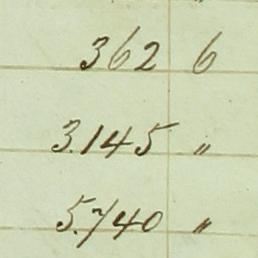 362 6
3.145 〃
5.740 〃